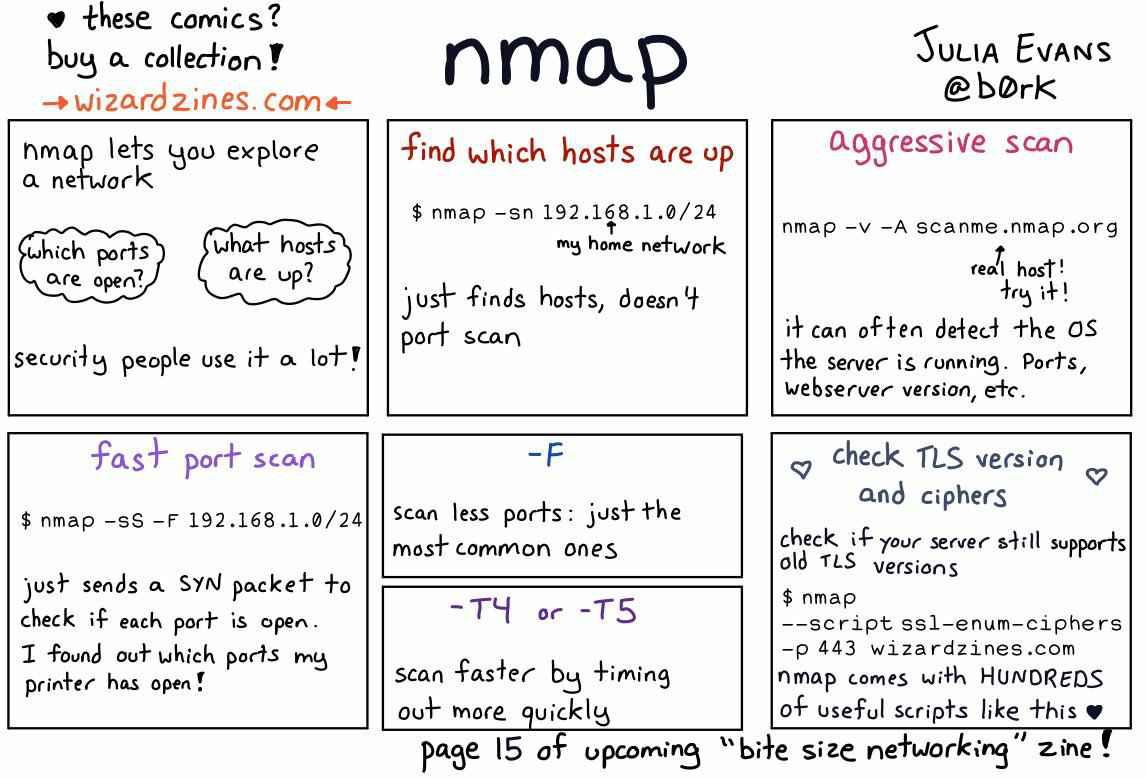 ♥ these comics?
buy a collection!
→wizardzines.com←
nmap
JULIA EVANS
@b0rk
nmap lets you explore
a network
which ports
are open?
what hosts
are up?
security people use it a lot!
find which hosts are up
$ nmap -sn 192.168.1.0/24
my home network
just finds hosts, doesn't
port scan
aggressive scan
nmap -v -A scanme.nmap.org
real host!
try it!
it can often detect the OS
the server is running. Ports,
webserver version, etc.
fast port scan
$ nmap -sS -F 192.168.1.0/24
just sends a SYN packet to
check if each port is open.
I found out which ports my
printer has open!
-F
scan less ports: just the
most common ones
-T4 or -T5
scan faster by timing
out more quickly
♡ check TLS version ♡
and ciphers
check if your server still supports
old TLS versions
$ nmap
--script ssl-enum-ciphers
-p 443 wizardzines.com
nmap comes with HUNDREDS
of useful scripts like this ♥
page 15 of upcoming "bite size networking" zine!